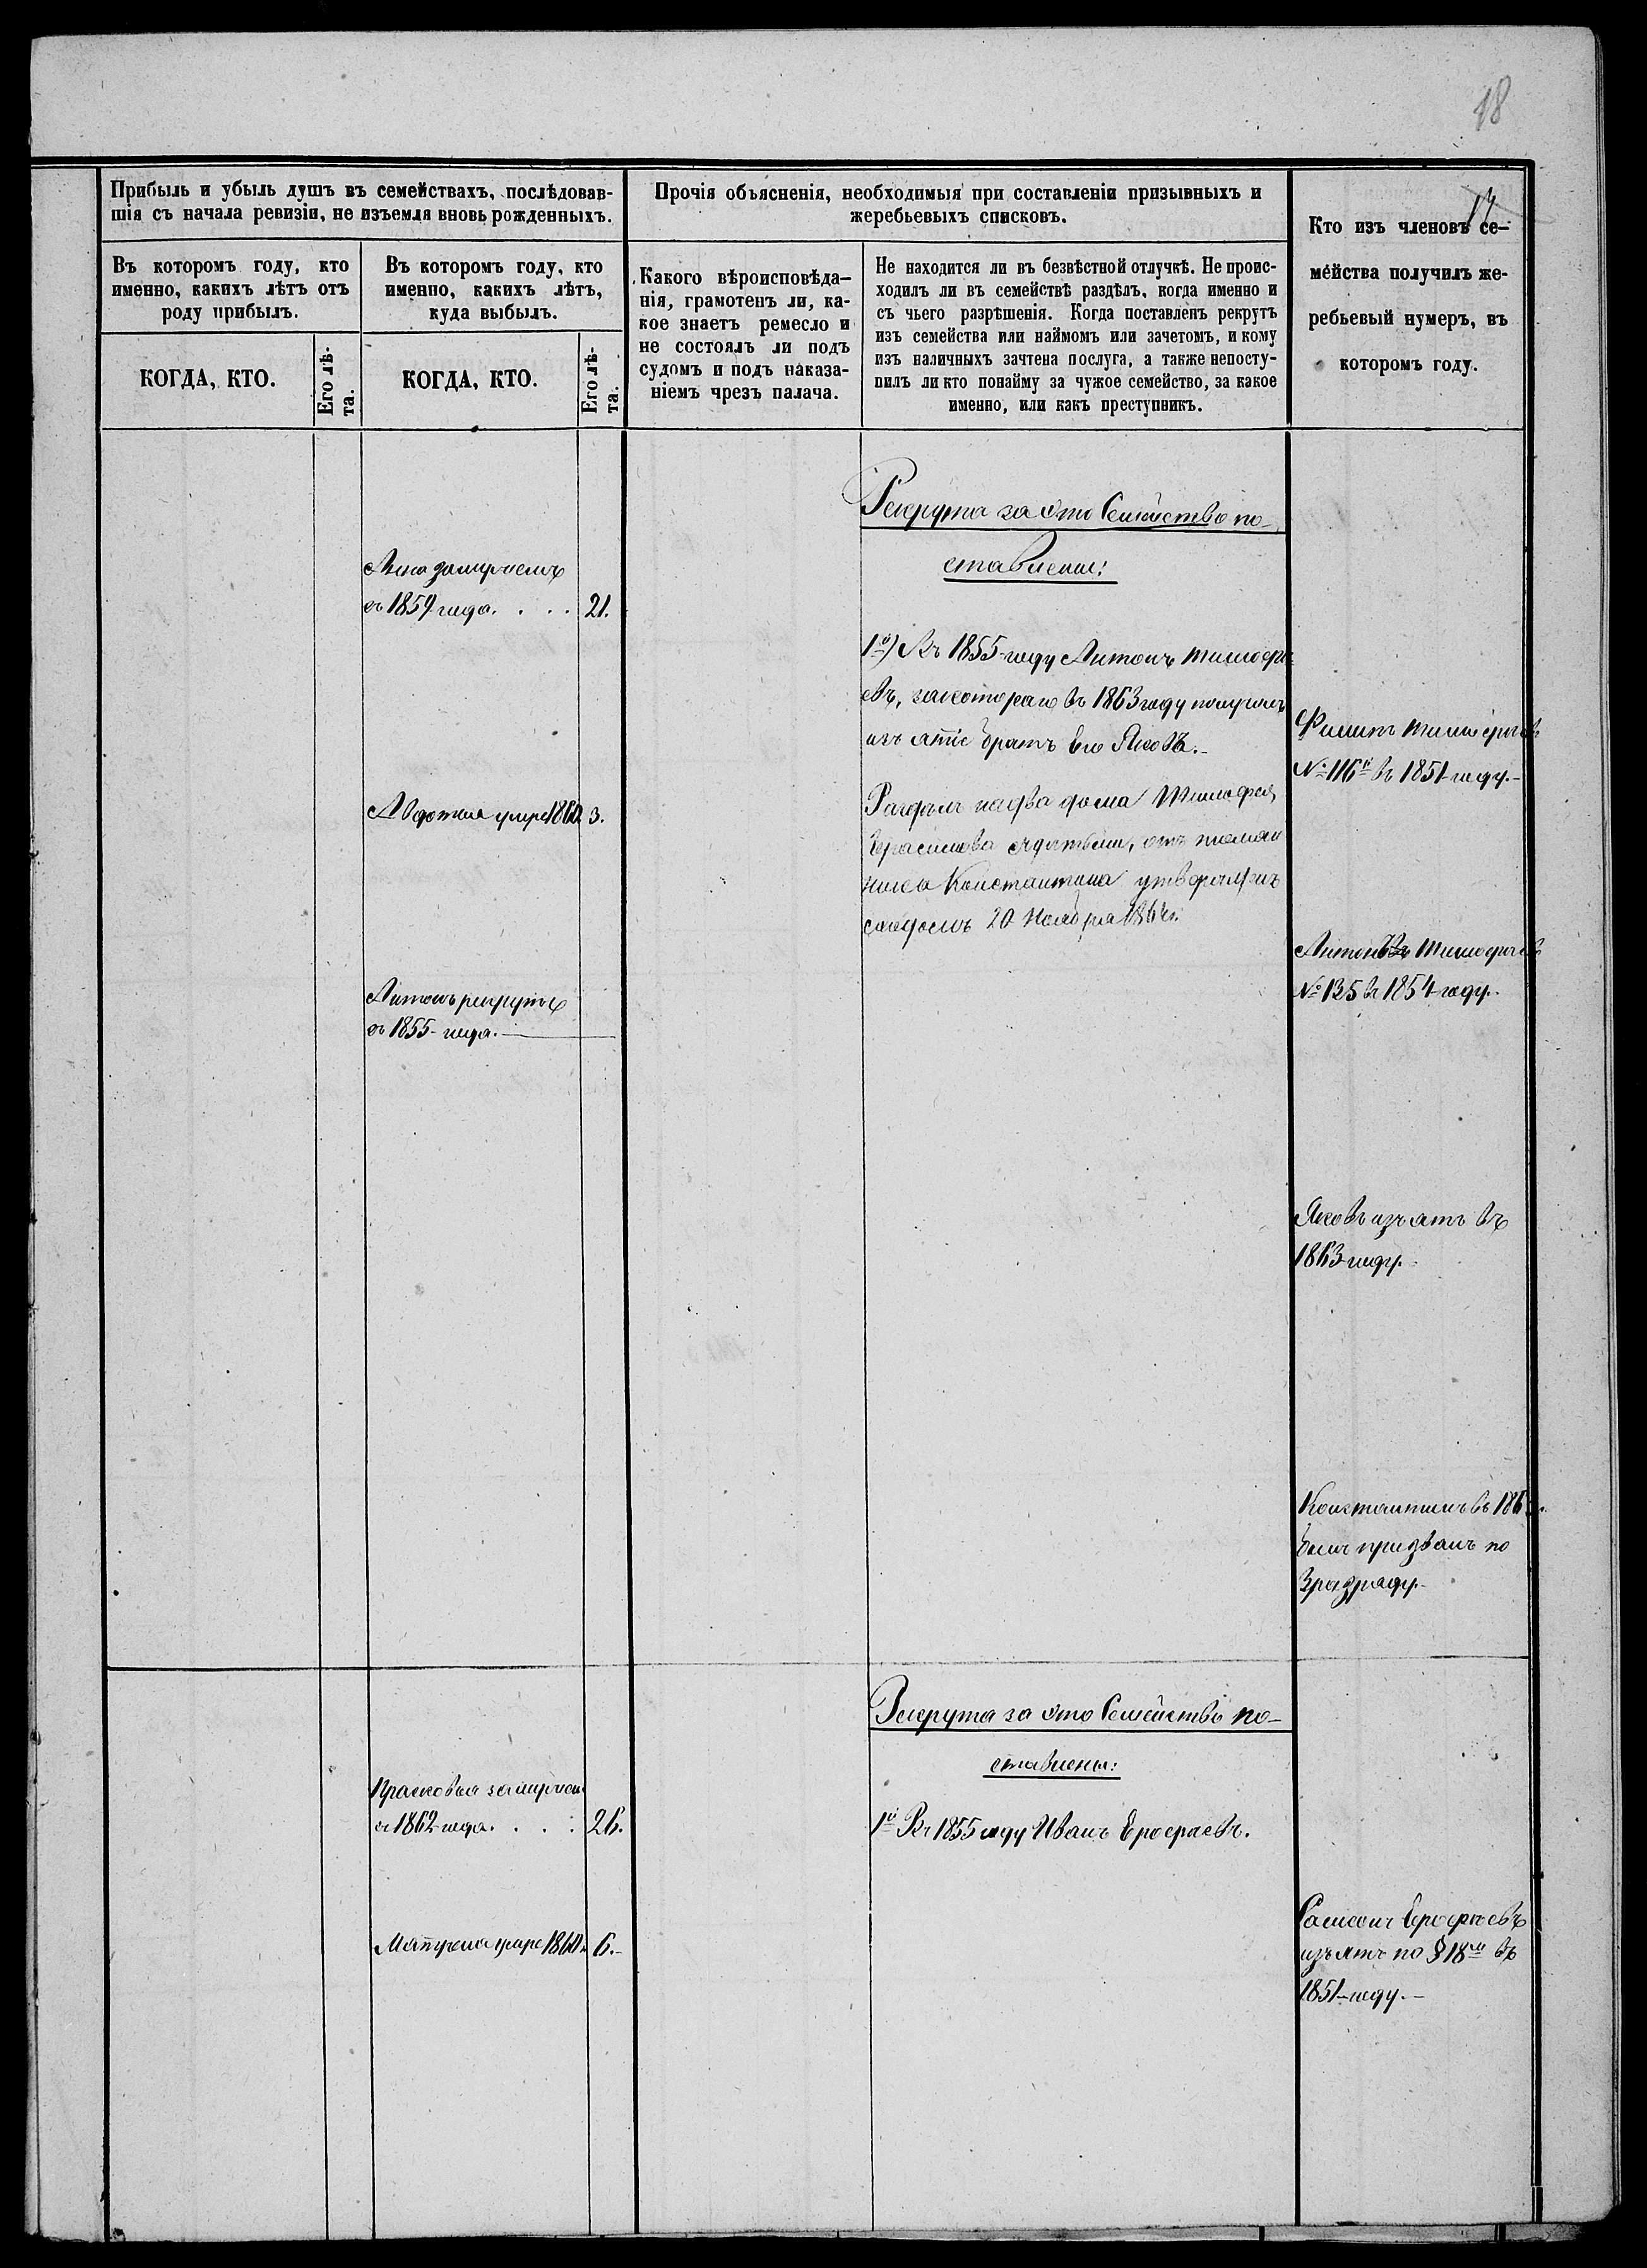 18
17
Прибыль и убыль душъ въ семействахъ, послѣдовав-
шія съ начала ревизіи, не изъемля вновь рожденныхъ.
Прочія объясненія, необходимыя при составленіи призывныхъ и
жеребьевыхъ списковъ.
Кто изъ членовъ се-
мейства получилъ же-
ребьевый нумеръ, въ
которомъ году.
Въ которомъ году, кто
именно, какихъ лѣтъ отъ
роду прибылъ.
Въ которомъ году, кто
именно, какихъ лѣтъ,
куда выбылъ.
Какого вѣроисповѣда-
нія, грамотенъ ли, ка-
кое знаетъ ремесло и
не состоялъ ли подъ
судомъ и подъ наказа-
ніемъ чрезъ палача.
Не находится ли въ безвѣстной отлучкѣ. Не проис-
ходилъ ли въ семействѣ раздѣлъ, когда именно и
съ чьего разрѣшенія. Когда поставленъ рекрутъ
изъ семейства или наймомъ или зачетомъ, и кому
изъ наличныхъ зачтена послуга, а также непосту-
пилъ ли кто понайму за чужое семейство, за какое
именно, или какъ преступникъ.
КОГДА, КТО.
Его лѣ-
та.
КОГДА, КТО.
Его лѣ-
та.
Рекрута за это Семейство по-
ставлены:
замужемъ
съ 1859 года. . . . 21.
1й) Въ 1855 году Антонъ Тимофе-
евъ, за котораго въ 1863 году получилъ
изъятіе братъ его Яковъ.-
Филипъ Тимофѣевъ
№ 116й въ 1851 году.-
Авдотья умре 1860. 3.
Раздѣлъ на два дома Тимофея
Герасимова съ дѣтьми, отъ племян
ника Константина утвержденъ
сходомъ 20 Ноября
Антонъ Тимофѣевъ
№ 135 въ 1854 году.
Антонъ рекрутъ
съ 1855 года.
Яковъ изъятъ въ
1863 году.
Константинъ въ
былъ призванъ по
3 разряду.
Рекрута за это Семейство по-
ставлены:
Прасковья замужемъ
съ 1862 года. . . . 26.
1й Въ 1855 году Иванъ Ерофѣевъ.
Матрена умре 1860. 6.-
Самсонъ Ерофѣевъ
изъятъ по § 18му въ
1851 году.-